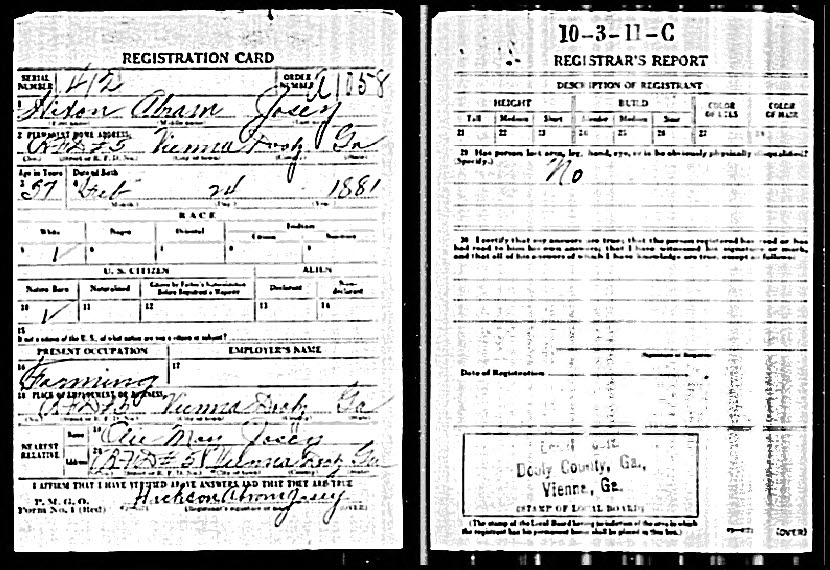 REGISTRATION CARD
SERIAL NUMBER 412 ORDER NUMBER A1058
1 Hixon Abram Josey
(First name) (Middle name) (Last name)
2 PERMANENT HOME ADDRESS:
RFD #5 Vienna Dooly Ga
(No.) (Street or R. F. D. No.) (City or town) (County) (State)
Age in Years Date of Birth
3 37 4 Feb 24 1881
(Month) (Day) (Year)
RACE
White Negro Oriental Indian
Citizen
5 / 6 7 8 9
U. S. CITIZEN ALIEN
Native Born Naturalized Citizen by Father's Naturalization Before Registrant's Majority Declarant Non-declarant
10 / 11 12 13 14
15
If not a citizen of the U. S., of what nation are you a citizen or subject?
PRESENT OCCUPATION EMPLOYER'S NAME
16 Farming 17
18 PLACE OF EMPLOYMENT OR BUSINESS:
RFD #5 Vienna Dooly Ga
(No.) (Street or R. F. D. No.) (City or town) (County) (State)
NEAREST RELATIVE
Name 19 Olie May Josey
Address 20 RFD #5 Vienna Dooly Ga
(No.) (Street or R. F. D. No.) (City or town) (County) (State)
I AFFIRM THAT I HAVE VERIFIED ABOVE ANSWERS AND THAT THEY ARE TRUE
P. M. G. O.
Form No. 1 (Red) Hickson Abrom Josey
(Registrant's signature or mark) (OVER)
10-3-11-C
REGISTRAR'S REPORT
DESCRIPTION OF REGISTRANT
HEIGHT BUILD COLOR OF EYES COLOR OF HAIR
Tall Medium Short Slender Medium Stout
21 22 23 24 25 26 27 28
29 Has person lost arm, leg, hand, eye, or is he obviously physically disqualified?
(Specify.) No
30 I certify that my answers are true; that the person registered has read or has
had read to him his own answers; that I have witnessed his signature or mark,
and that all of his answers of which I have knowledge are true, except as follows:
(Signature of Registrar)
Date of Registration
Dooly County, Ga.,
Vienna, Ga.
(STAMP OF LOCAL BOARD)
(The stamp of the Local Board having jurisdiction of the area in which
the registrant has his permanent home shall be placed in this box.)
(OVER)